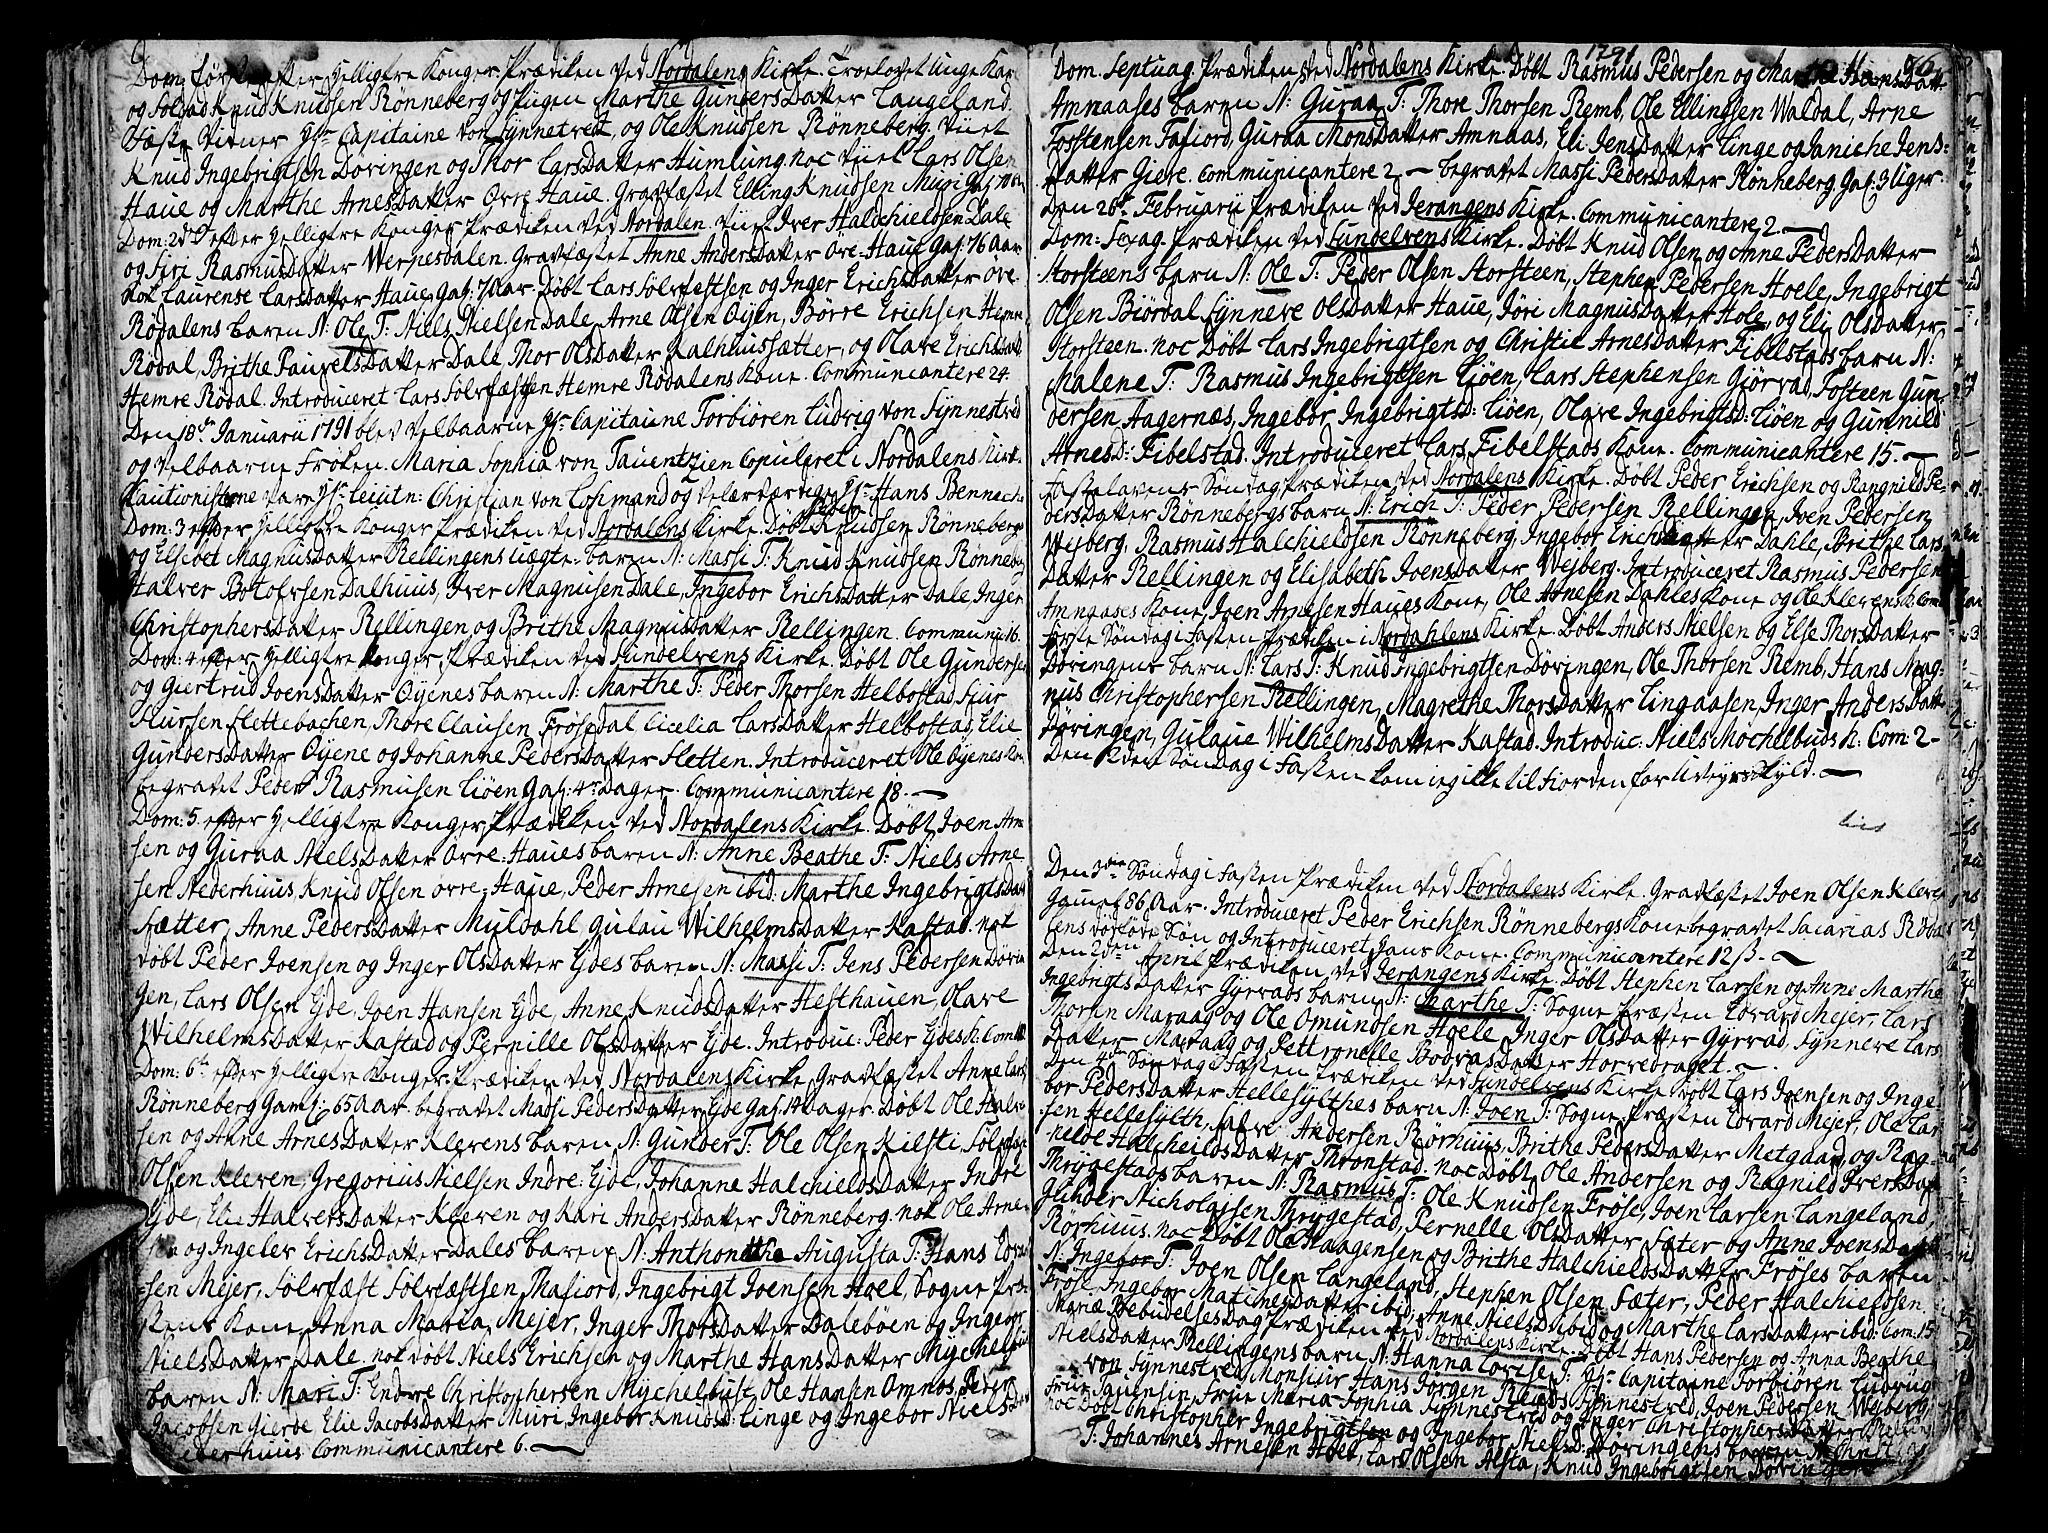 Dom: Første efter Hellig tre Konger Prædiken ved Nordalens Kirke. Troelovet unge Karl
og Soldad Knud Knudsen Rønneberg og Pigen Marthe Gunders Datter Langeland.
Fæste Vidner Hr. Capitaine von Synnestved, og Ole Knudsen Rønneberg. Viet
Knud Ingebrigtsen Døvingen og Thor Lars Datter Humlung. noc Viet Lars Olsen
Haue og Marthe Arnes Datter Ovre Haue. Gravfæstet Elling Knudsen Muri Gaf: 70
Dom: 2den efter Hellig tre Konger Prædiken ved Nordalen. Viet Iver Halchieldsen Dale
og Siri Rasmusdatter Wernesdalen. Gravfæstet Anne Anders Datter Ovre-Haue Gaf: 76 Aar
nok Laurense Larsdatter Haue, Gaf: 70 Aar. Døbt Lars Sølvfestsen og Inger Erichs Datter Øvre
Rødalens barn N: Ole T: Niels Nielsen Dale, Arne Olsen Øyen, Børre Erichsen Hemre
Rødal, Brithe Pauvels Datter Dale, Thor Ols Datter Dalhuussætter, og Olave Erichsdatter
Hemre Rødal. Introduceret Lars Sølvfæstsen Hemre Rødalens Kone. Communicantere 24.
Den 18de Januarii 1791 blev Velbaarne Hr. Capitaine Torbiøren Ludvig von Synnestved
og Velbaarne Frøken Maria Sophia von Tauentzien Copuleret i Nordalens Kirke
Cautionisterne vare Hr. Leiutn: Christian von Lohmand og Velærværdige Hr. Hans Bennech
Dom: 3 efter Hellig tre Konger Prædiken ved Nordalens Kirke. Døbt Peder Knudsen Rønnebergs
og Elsebet Magnus Datter Rellingens uægte barn N: Massi T: Knud Knudsen Rønneberg
Halver Botolvsen Dalhuus, Iver Magnusen Dale, Ingebor Erichs Datter Dale, Inger
Christophers Datter Rellingen og Brithe Magnusdatter Rellingen. Communic: 16.
Dom: 4 efter Hellig tre Konger, Prædiken ved Sundelvens Kirke. Døbt Ole Gundersen
og Giertrud Joens Datter Øyenes barn N: Marthe T: Peder Thorsen Helbostad Siur
Siursen Slettebachen, Thore Clausen Frøisdal Cicelia Lars Datter Helbostad, Elie
Gunders Datter Øyene og Johanne Peders Datter Sletten. Introduceret Ole Øyenes Ko
begravet Peder Rasmusen Liøen Gaf: 4re Dager. Communicantere 18.
Dom: 5 efter Hellig tre Konger, Prædiken ved Nordalens Kirke. Døbt Joen Arne
sen og Guraa Niels Datter Ovre: Haues barn N: Anne Beathe T: Niels Arne
sen Nederhuus, Knud Olsen Øvre: Haue, Peder Arnesen ibid: Marthe Ingebrigts Datter
Sætter, Anne Peders Datter Muldahl, Gulau Wilhelms Datter Kastad. nok
døbt Peder Joensen og Inger Ols Datter Ejdes barn N: Massi T: Jens Pedersen Døvin
gen, Lars Olsen Ejde, Joen Hansen Ejde, Anne Knuds Datter Hesthauen, Olave
Wilhelms Datter Kastad og Pernille Ols Datter Ejde. Introduc: Peder Ejdes h. Com:
Dom: 6te efter Hellig tre Konger Prædiken ved Nordalens Kirke, Gravfæstet Anne Lars
Rønneberg Gaml: 65 Aar. begravet Madsi Peders Datter Ejde Gaf: 14 Dager. Døbt Ole Halv
sen og Anne Arnes Datter Klevens barn N: Gunder T: Ole Olsen Kilsti, Sølvfæst
Olsen Kleven, Gregorius Nielsen Indre: Ejde, Johanne Halchields Datter Indre
Ejde, Elie Halvers Datter Kleven og Kari Anders Datter Rønneberg. nok Ole Arne
sen og Ingeler Erichs Datter Dales barn N: Anthonethe Augusta T: Hans Edvar
sen Mejer, Sølvfæst Sølvfæstsen Thafiord, Ingebrigt Joensen Hoel, Sogne Præ
stens Kone Anna Maria Mejer, Inger Thors Datter Dalebøen og Ingebor
Niels Datter Dale. nok døbt Niels Erichsen og Marthe Hans Datter Mychelbust
barn N: Mari T: Endre Christophersen Mychelbust, Ole Hansen Omnos, Peder
Jacobsen Gierde Elie Jacobs Datter Muri, Ingebor Knudsd: Linge og Ingebor Niels Dat
Nederhuus Communicantere 6.
1791
Dom. Septuag. Prædiken ved Nordalens Kirke. Døbt Rasmus Pedersen og Hans Datt
Amnaases barn N: Guraa T: Thore Thorsen Remb, Ole Ellingsen Waldal, Arne
Tostensen Tafiord, Guraa Monsdatter Amnaas, Eli Jens Datter Linge og Janiche Jens:
Datter Giere. Communicantere 2. begravet Massi Peders Datter Rønneberg Gaf: 3 Uger.
Den 20de Februarii Prædiken ved Jerangens Kirke. Communicantere 2.
Dom: Sexag. Prædiken ved Sundelvens Kirke. Døbt Knud Olsen og Anne Peders Datter
Storsteens barn N: Ole T: Peder Olsen Storsteen, Stephen Pedersen Hoele, Ingebrigt
Olsen Biørdal Synneve Olsdatter Haue, Jøri Magnusdatter Hole, og Eli Olsdatter
Storsteen. noc Døbt Lars Ingebrigtsen og Christie Arnes Datter Fibelstads barn N:
Malene T: Rasmus Ingebrigtsen Liøen, Lars Stephensen Giørvad, Josteen Gun
dersen Aagernæs, Ingebor Ingebrigtsd: Liøen, Olave Ingebrigtsd: Liøen og Gunnild
Arnes D: Fibelstad. Introduceret Lars Fibelstads Kone. Communicantere 15.
Fastelavens Søndag Prædiken ved Nordalens Kirke. Døbt Peder Erichsen og Rangnild Pe
ders Datter Rønnebergs barn N: Erich T: Peder Pedersen Rellingen, Joen Pedersen
Wejberg, Rasmus Halchieldsen Rønneberg, Ingebor Erichsdatter Dahle, Brithe Lars
Datter Rellingen og Elisabeth Joens Datter Wejberg. Introduceret Rasmus Pedersen
Amnaases Kone, Joen Arnesen Haues Kone, Ole Arnesen Dahles Kone og Ole Klevens K: Com
første Søndag i Fasten Prædiken i Nordahlens Kirke. Døbt Anders Nielsen og Else Thors Datter
Døvingens barn N: Lars T: Knud Ingebrigtsen Døvingen, Ole Thorsen Remb, Hans Mag
nus Christophersen Rellingen, Magrethe Thors Datter Lingaasen, Inger Anders Datt
Døvingen, Gulaue Wilhelms Datter Kastad. Introduc. Niels Mochelbuds h: Com: 2
Den 2den Søndag i Fasten kom ieg ikke til Fiorden for Uveyrs Skyld.
Den 3die Søndag i Fasten Prædiken ved Nordalens Kirke. Gravfæstet Joen Olsen Kleve
Gamel 86 Aar. Introduceret Peder Erichsen Rønnebergs Kone begravet Sacarias Røda
lens dødfødde Søn og Introduceret Hans Kone. Communicantere 12 ß.
Den 2den April Prædiken ved Jerangens Kirke. Døbt Stephen Larsen og Anne Marthe
Ingebrigts Datter Gyrvads barn N: Marthe T: Sogne Præsten Edvard Mejer, Lars
Thorsen Maraag og Ole Omundsen Hoele Inger Ols Datter Gyrvad, Synneve Lars
Datter Maraag og Pettronelle Bodvas Datter Horvedraget.
Den 4de Søndag i Fasten Prædiken ved Sundelvens Kirke døbt Lars Joensen og Inge-
bor Peders Datter Hellesylthes barn N: Joen T: Sogne Præsten Edvard Mejer, Ole Lar
sen Hellesylth, Salve Andersen Rørhuus, Brithe Peders Datter Metgaar og Rag-
nilde Halcheilds Datter Thronstad. noc Døbt Ole Andersen og Ragnild Ivers Datt
Thrygestads barn N: Rasmus T: Ole Knudsen Frøse, Joen Larsen Langeland,
Gunder Nicholajsen Thrygestad, Pernelle Olsdatter Sæter og Anne Joens Datter
Rørhuus. noc Døbt Ole Haagensen og Brithe Halchields Datter Frøses barn
N: Ingebor T: Joen Olsen Langeland, Stephen Olsen Sæter, Peder Halchieldsen
Frøse Ingebor Matines Datter ibid, Anne Niels D: ibid og Marthe Lars Datter ibid: Com: 15
Mariæ Bebudelses Dag Prædiken ved Nordalens Kirke. Døbt Hans Pedersen og Anna Beathe
Niels Datter Rellingens barn N: Hanna Lovise T: Hr. Capitaine Torbiøren Ludvig
von Synnestved Monsiur Hans Jørgen Synnestved, Joen Pedersen Wejberg,
Frue Tauensin, Frue Maria Sophia Synnestved og Inger Christophers Datter
noc Døbt Christopher Ingebrigtsen og Ingebor Niels D: Døvingens barn N:
T: Johannes Arnesen Hoel, Lars Olsen Alsta, Knud Ingebrigtsen Døvingen